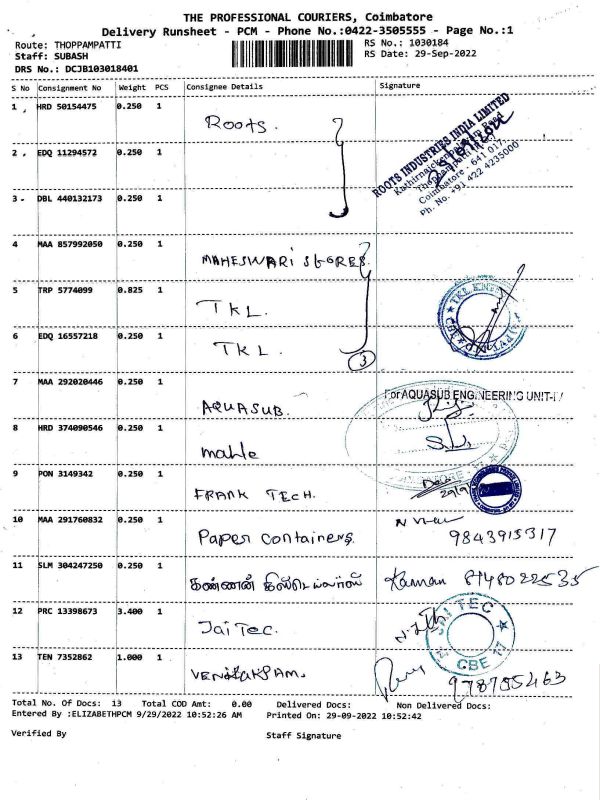 THE PROFESSIONAL COURIERS, Coimbatore
Delivery Runsheet - PCM - Phone No.:0422-3505555 - Page No.:1
Route: THOPPAMPATTI RS No.: 1030184
Staff: SUBASH RS Date: 29-Sep-2022
DRS No.: DCJB103018401
S No Consignment No Weight PCS Consignee Details Signature
1 HRD 50154475 0.250 1 Roots.
ROOTS INDUSTRIES INDIA LIMITED
Kathirnaickenpalayam Road
Thoppampatti
Coimbatore - 641 017.
Ph. No. +91 422 4235000
2 EDQ 11294572 0.250 1
3 DBL 440132173 0.250 1
4 MAA 857992050 0.250 1 MAHESWARI STORES
5 TRP 5774099 0.825 1 TKL.
6 EDQ 16557218 0.250 1 TKL.
3
7 MAA 292020446 0.250 1 AQUASUB. For AQUASUB ENGINEERING UNIT-IV
8 HRD 374090546 0.250 1 mahle
9 PON 3149342 0.250 1 FRANK TECH. 29/9
10 MAA 291760832 0.250 1 Paper containers 9843915317
11 SLM 304247250 0.250 1 கண்ணன் Kannan 8148022535
12 PRC 13398673 3.400 1 Jai Tec. JAI TEC CBE
13 TEN 7352862 1.000 1
Total No. Of Docs: 13 Total COD Amt: 0.00 Delivered Docs: Non Delivered Docs:
Entered By :ELIZABETHPCM 9/29/2022 10:52:26 AM Printed On: 29-09-2022 10:52:42
Verified By Staff Signature